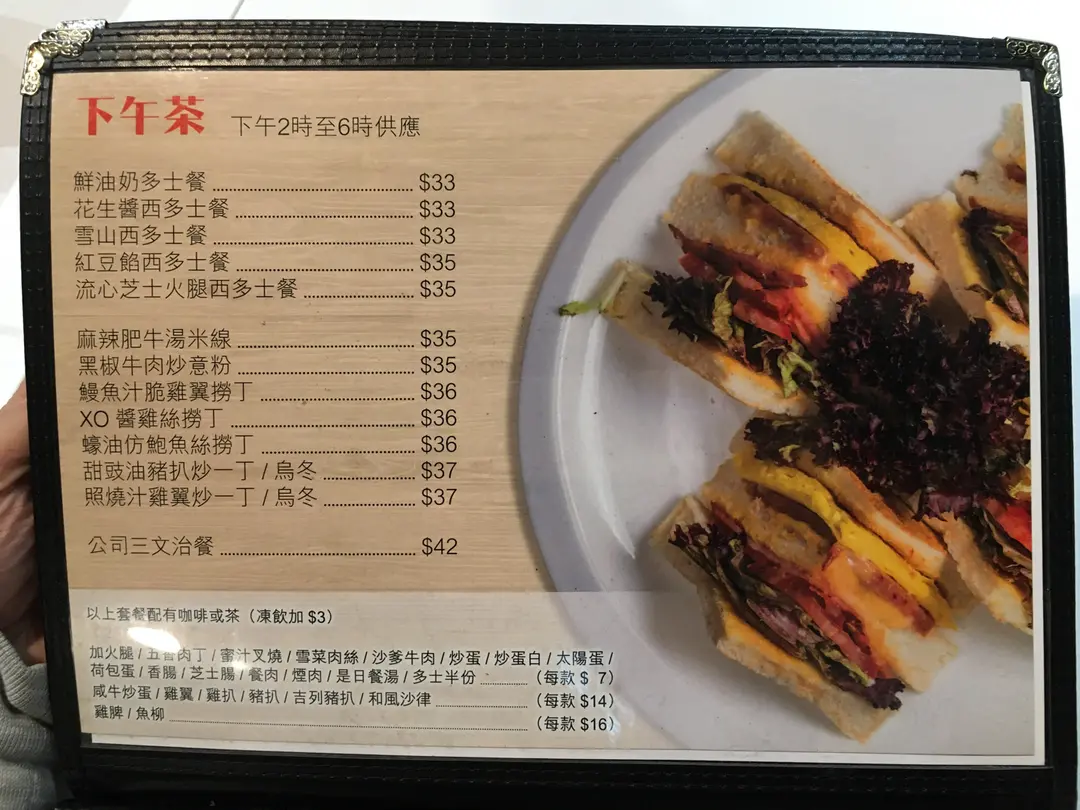 下午茶 下午2時至6時供應
鮮油奶多士餐 $33
花生醬西多士餐 $33
雪山西多士餐 $33
紅豆餡西多士餐 $35
流心芝士火腿西多士餐 $35
麻辣肥牛湯米線 $35
黑椒牛肉炒意粉 $35
鰻魚汁脆雞翼撈丁 $36
XO 醬雞絲撈丁 $36
蠔油仿鮑魚絲撈丁 $36
甜豉油豬扒炒一丁 / 烏冬 $37
照燒汁雞翼炒一丁 / 烏冬 $37
公司三文治餐 $42
以上套餐配有咖啡或茶（凍飲加 $3）
加火腿 / 五香肉丁 / 蜜汁叉燒 / 雪菜肉絲 / 沙爹牛肉 / 炒蛋 / 炒蛋白 / 太陽蛋 /
荷包蛋 / 香腸 / 芝士腸 / 餐肉 / 煙肉 / 是日餐湯 / 多士半份 （每款 $ 7）
咸牛炒蛋 / 雞翼 / 雞扒 / 豬扒 / 吉列豬扒 / 和風沙律 （每款 $14）
雞脾 / 魚柳 （每款 $16）